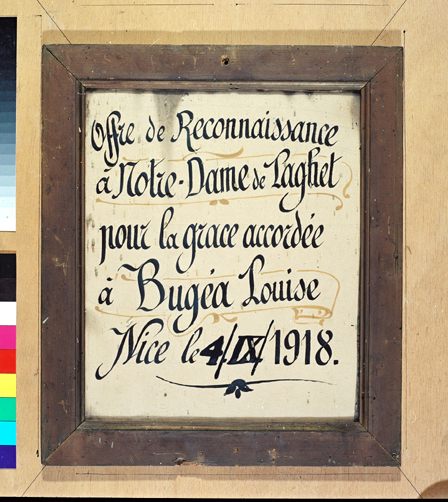 Offre de Reconnaissance
à Notre-Dame de Laghet
pour la grace accordée
à Bugéa Louise
Nice le 4/IX/1918.